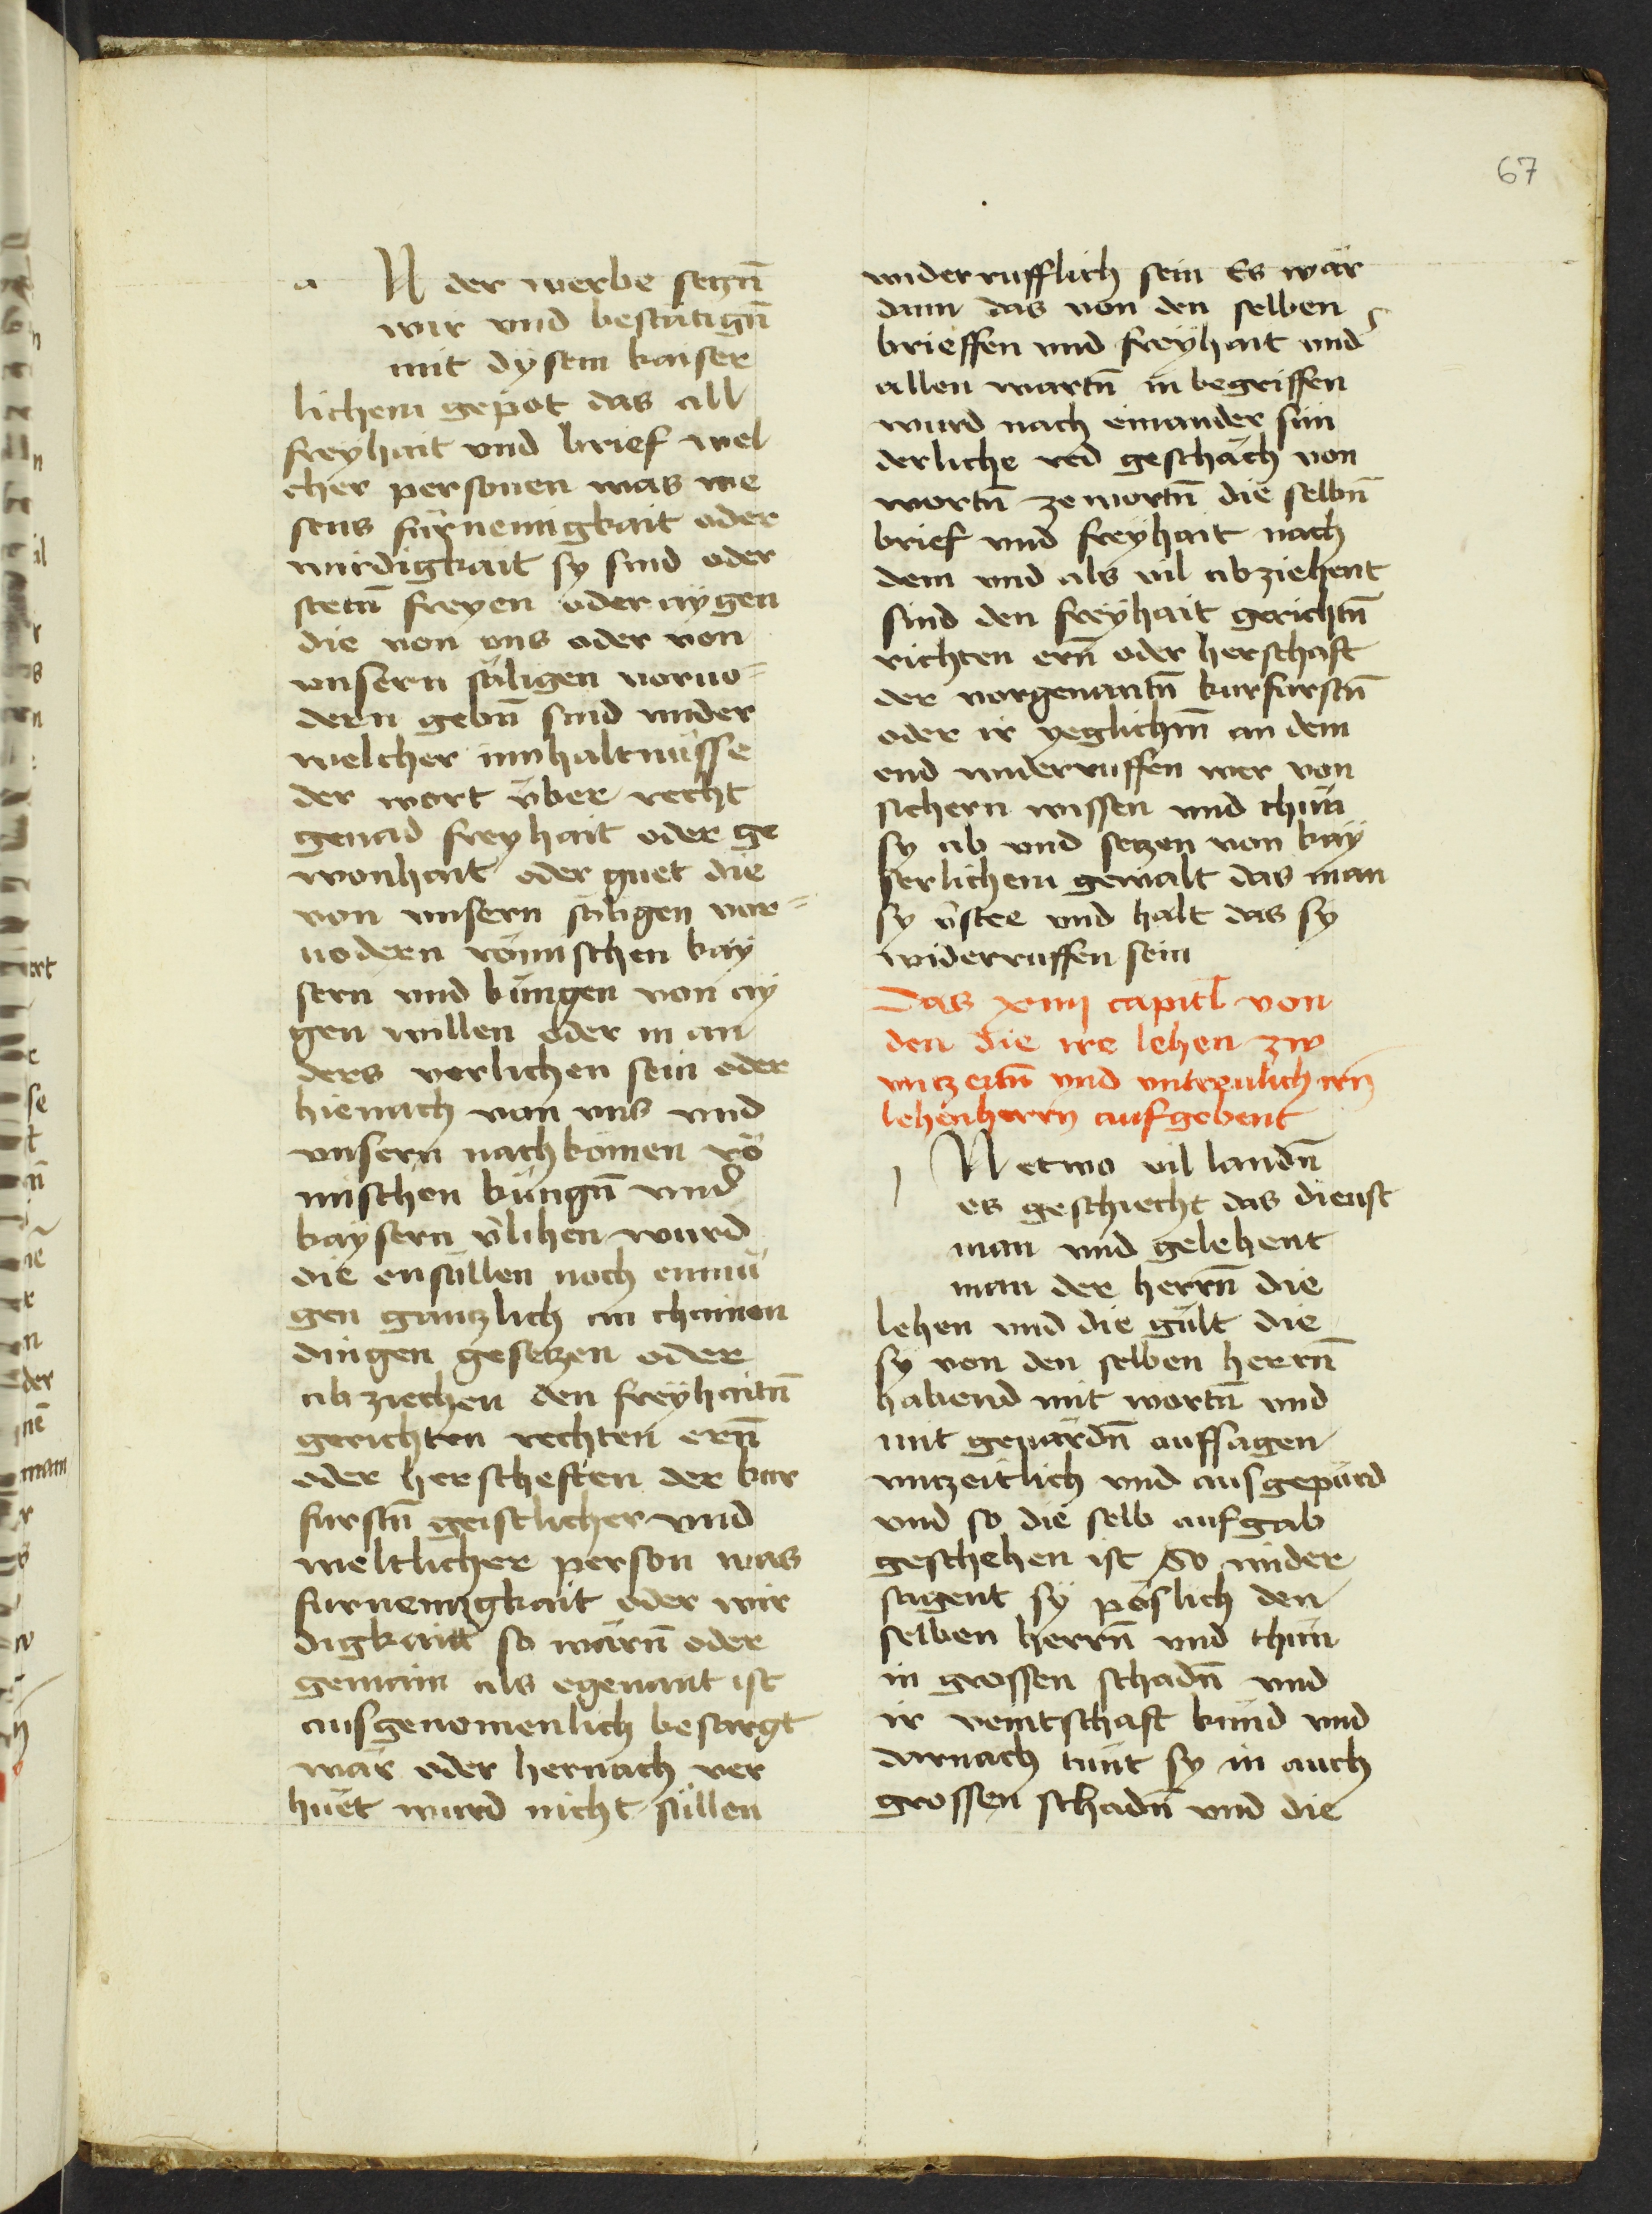 67
a N der werbe setzn̄
wir vnd bestätign̄
mit dysem kaiser
lichem gepot das all
freyhait vnd brief wel
cher personen was we
sens fürnemigkait oder
wirdigkait sy sind oder
stetn̄ freyen oder aygen
die von vns oder von
vnsern säligen voruo=
dern gebn̄ sind vnder
welcher innhaltnüsse
der wort über recht
genad freyhait oder ge
wonhait oder guet die
von vnsern säligen vor=
uodern römischen kay
sern vnd küngen von ay
gen willen oder in an
ders verlichen sein oder
hienach von vns vnd
vnsern nachkömen rö
mischen küngn̄ vnd
kaysern v̄lihen wurd
die ensüllen noch enmü
gen gantzlich an chainen
dingen gesetzen oder
ab ziechen den freyhaitn̄
gerichten rechten ern̄
oder herscheften der kur
furstn̄ geistlicher vnd
weltlicher person was
furnemigkait oder wir
digkaitt so wärn̄ oder
gemain als egenant ist
ausgenomenlich besorgt
wär oder hernach ver
huet wurd nicht süllen
widerrufflich sein Es wär
dann das von den selben
brieffen vnd freyhait vnd
allen wartn̄ in begriffen
wurd nach einander sun
derliche red geschäch von
wortn̄ ze wortn̄ die selbn̄
brief vnd freyhait nach
dem vnd als vil abziehent
sind den freyhait gerichtn̄
richten ern̄ oder herschaft
der vorgenantn̄ kurfurstn̄
oder ir yeglichm̄ an dem
end widerruffen wer von
sichern wissen vnd thün
sy ab vnd setzen von kay
serlichem gewalt das man
sy v̄stee vnd halt das sy
widerruffen sein
Das xiiij capitl̄ von
den die ire lehen zw
vntzeitn̄ vnd vntreulich irn̄
lehenherrn aufgebent
i N etwo vil landn̄
es geschiecht das dienst
man vnd gelehent
man der herrn̄ die
lehen vnd die gült die
sy von den selben herrn̄
habend mit wortn̄ vnd
mit gewärdn̄ auffsagen
vntzeitlich vnd ausgepürd
vnd so die selb aufgab
geschehen ist So wider
sagent sy pöslich den
selben herrn̄ vnd thün
in grossen schadn̄ vnd
ir veintschaft künd vnd
darnach tünt sy in auch
grossen schadn̄ vnd die